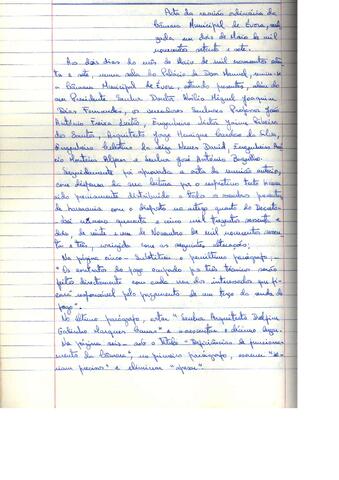 Acta da reunião ordinária da
Câmara Municipal de Évora, reali-
zada em dois de Maio de mil
novecentos setenta e sete.
Aos dois dias do mês de Maio de mil novecentos seten-
ta e sete, numa sala do Palácio de Dom Manuel, reuniu-se
a Câmara Municipal de Évora, estando presentes, além do
seu Presidente Senhor Doutor Abílio Miguel Joaquim
Dias Fernandes, os vereadores Senhores Professor José
António Freire Leitão, Engenheiro Victor Jaime Ribeiro
dos Santos, Arquitecto Jorge Henrique Cardoso da Silva,
Engenheiro Celestino da Neves David, Engenheiro
Monteiro e Senhor José António
Seguidamente foi aprovada a acta da reunião anterior,
com dispensa da sua leitura por o respectivo texto haver
sido previamente distribuído a todos os membros presentes
de harmonia com o disposto no artigo quarto do Decreto-
-Lei número quarenta e cinco mil trezentos sessenta e
dois, de vinte e um de Novembro de mil novecentos sessen-
ta e três, corrigida com as seguintes alterações:
Na página cinco - Substituir o penúltimo parágrafo, -
"Os contratos do fogo ocupado por três técnicos serão
feitos directamente com cada um dos interessados que fi-
cará responsável pelo pagamento de um terço da renda do
fogo".
No último parágrafo, cortar "Senhor Arquitecto Delfim
Galinha Marques" e acrescentar e décimo lugar.
Na página seis - sob o título "Deficiências de funciona-
mento da Câmara", no primeiro parágrafo, escrever "se-
riam precisos" e eliminar